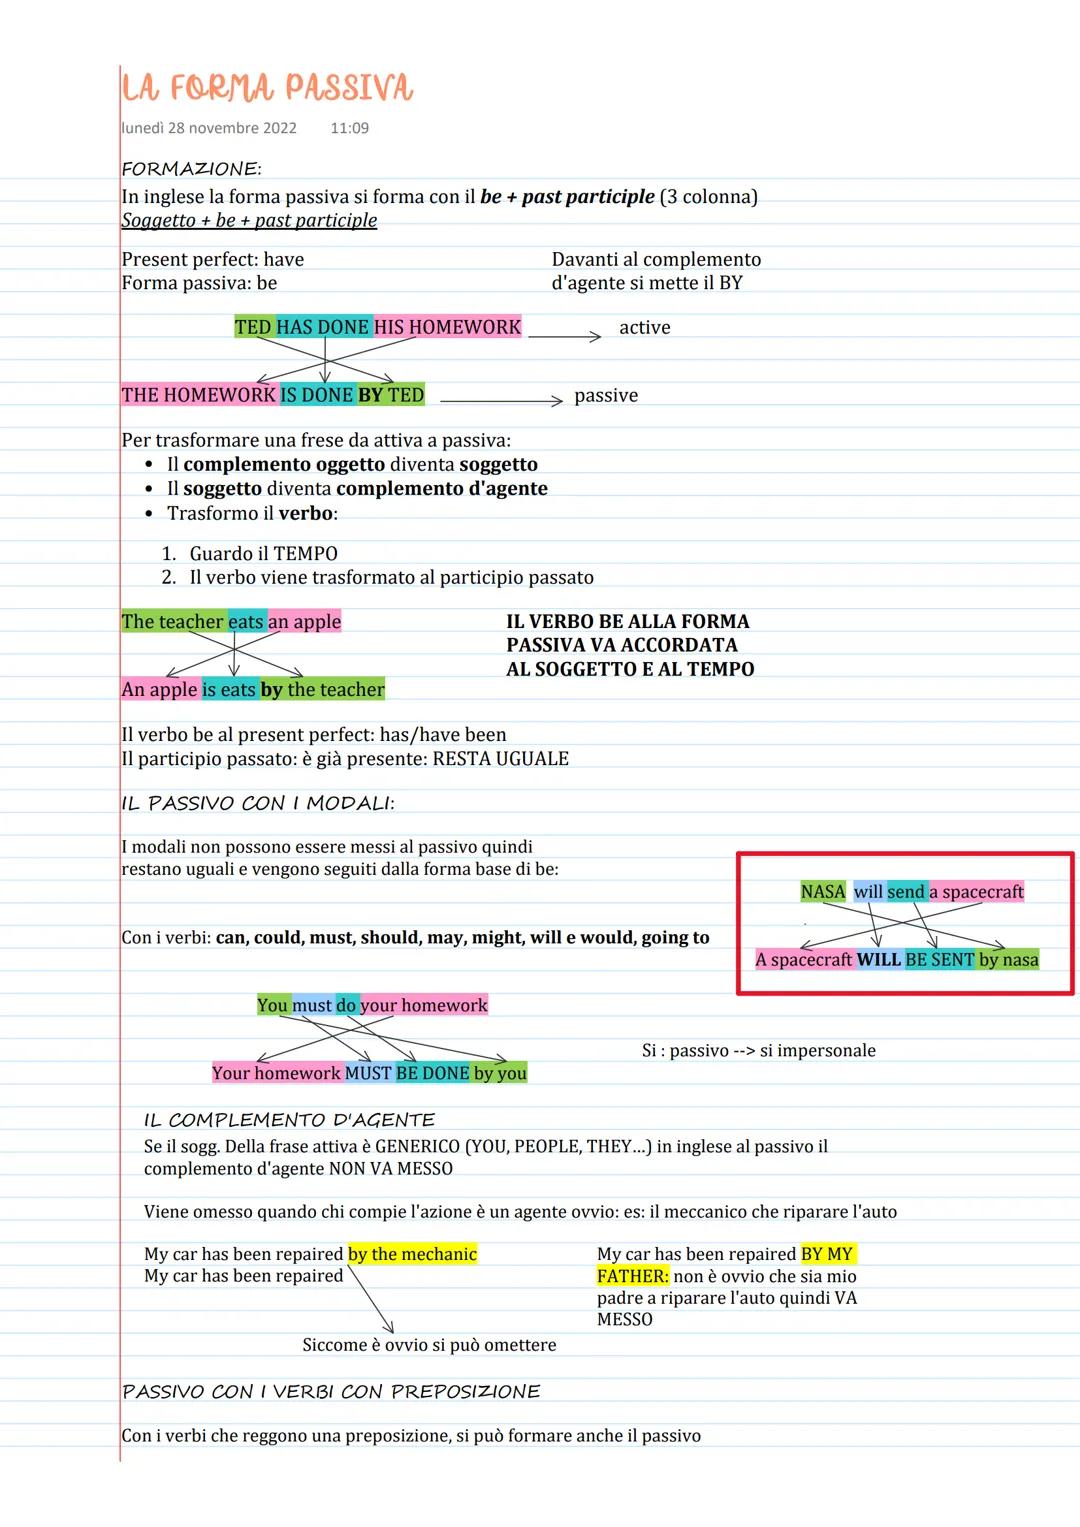 LA FORMA PASSIVA
lunedì 28 novembre 2022 11:09
FORMAZIONE:
In inglese la forma passiva si forma con il be + past participle (3 colonna)
Soggetto + be + past participle
Present perfect: have
Forma passiva: be
Davanti al complemento
d'agente si mette il BY
TED HAS DONE HIS HOMEWORK active
THE HOMEWORK IS DONE BY TED passive
Per trasformare una frese da attiva a passiva:
• Il complemento oggetto diventa soggetto
• Il soggetto diventa complemento d'agente
• Trasformo il verbo:
1. Guardo il TEMPO
2. Il verbo viene trasformato al participio passato
The teacher eats an apple
An apple is eats by the teacher
IL VERBO BE ALLA FORMA
PASSIVA VA ACCORDATA
AL SOGGETTO E AL TEMPO
Il verbo be al present perfect: has/have been
Il participio passato: è già presente: RESTA UGUALE
IL PASSIVO CON I MODALI:
I modali non possono essere messi al passivo quindi
restano uguali e vengono seguiti dalla forma base di be:
NASA will send a spacecraft
A spacecraft WILL BE SENT by nasa
Con i verbi: can, could, must, should, may, might, will e would, going to
You must do your homework
Your homework MUST BE DONE by you
Si : passivo --> si impersonale
IL COMPLEMENTO D'AGENTE
Se il sogg. Della frase attiva è GENERICO (YOU, PEOPLE, THEY...) in inglese al passivo il
complemento d'agente NON VA MESSO
Viene omesso quando chi compie l'azione è un agente ovvio: es: il meccanico che riparare l'auto
My car has been repaired by the mechanic
My car has been repaired
Siccome è ovvio si può omettere
My car has been repaired BY MY
FATHER: non è ovvio che sia mio
padre a riparare l'auto quindi VA
MESSO
PASSIVO CON I VERBI CON PREPOSIZIONE
Con i verbi che reggono una preposizione, si può formare anche il passivo